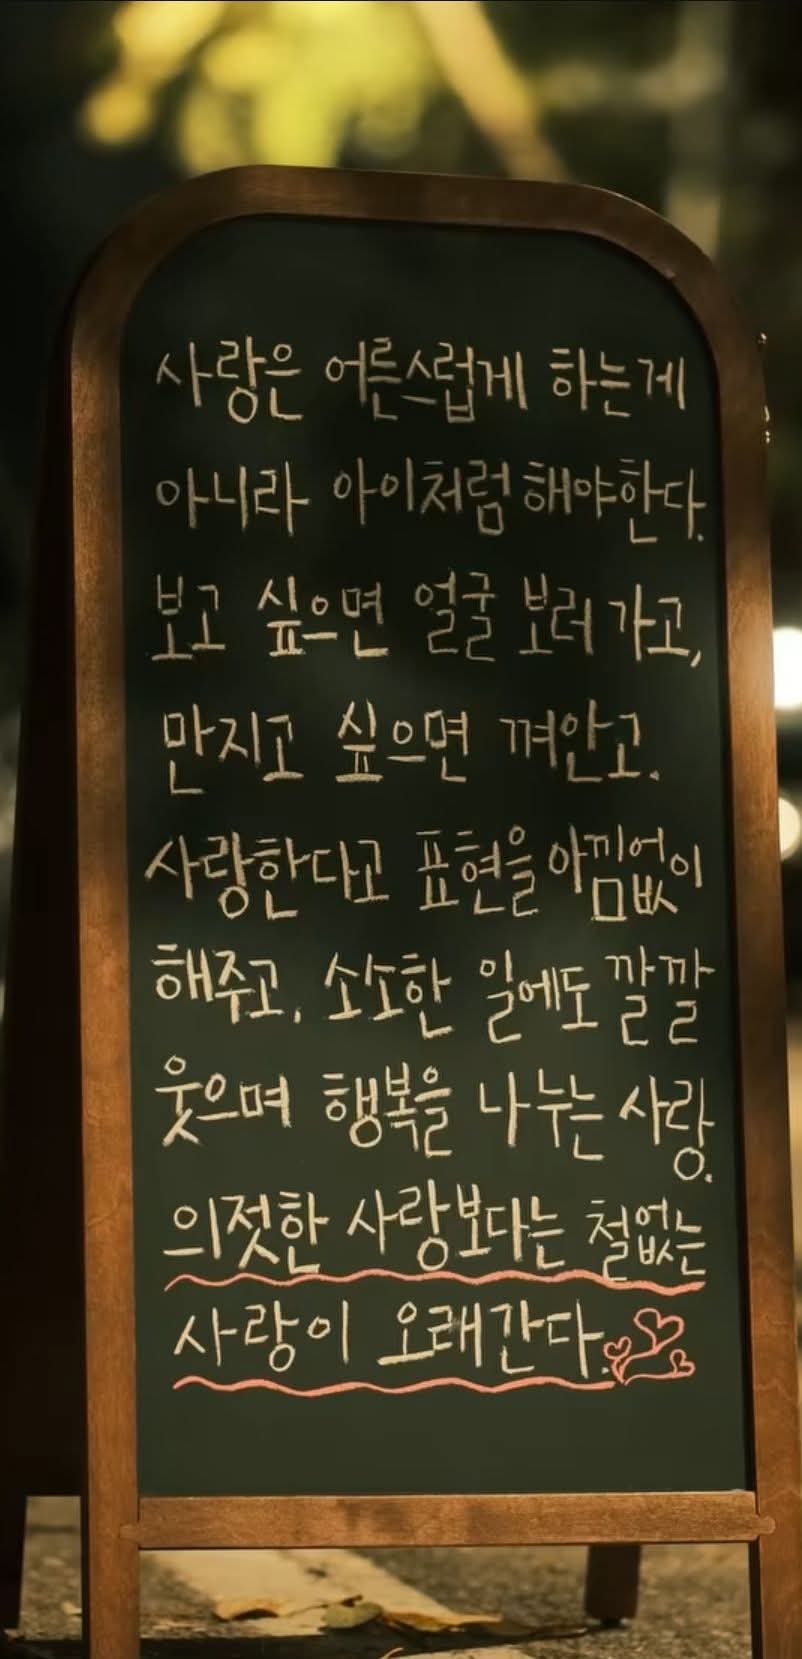 사랑은 어른스럽게 하는게
아니라 아이처럼 해야한다.
보고 싶으면 얼굴 보러 가고,
만지고 싶으면 껴안고.
사랑한다고 표현을 아낌없이
해주고, 소소한 일에도 깔깔
웃으며 행복을 나누는 사랑.
의젓한 사랑보다는 철없는
사랑이 오래간다.